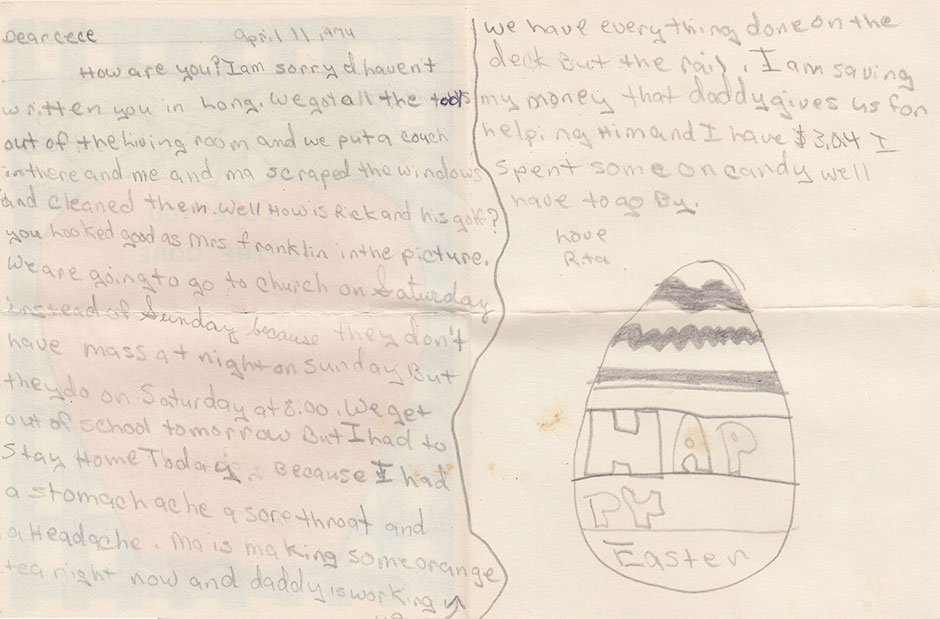 Dear cece April 11, 1974
How are you? I am sorry I haven't
written you in long. We got all the tools
out of the living room and we put a couch
in there and me and ma scraped the windows
and cleaned them. Well How is Rick and his golf?
you looked good as Mrs franklin in the picture.
We are going to go to church on Saturday
instead of Sunday because they don't
have mass at night on Sunday But
they do on Saturday at 8:00. We get
out of school tomorrow But I had to
Stay Home Today. Because I had
a stomach ache a sore throat and
a Headache. Ma is making some orange
tea right now and daddy is working
we have everything done on the
deck But the rail. I am saving
my money that daddy gives us for
helping Him and I have $3.04 I
spent some on candy well
have to go By.
Love
Rita
HAP
PY
Easter